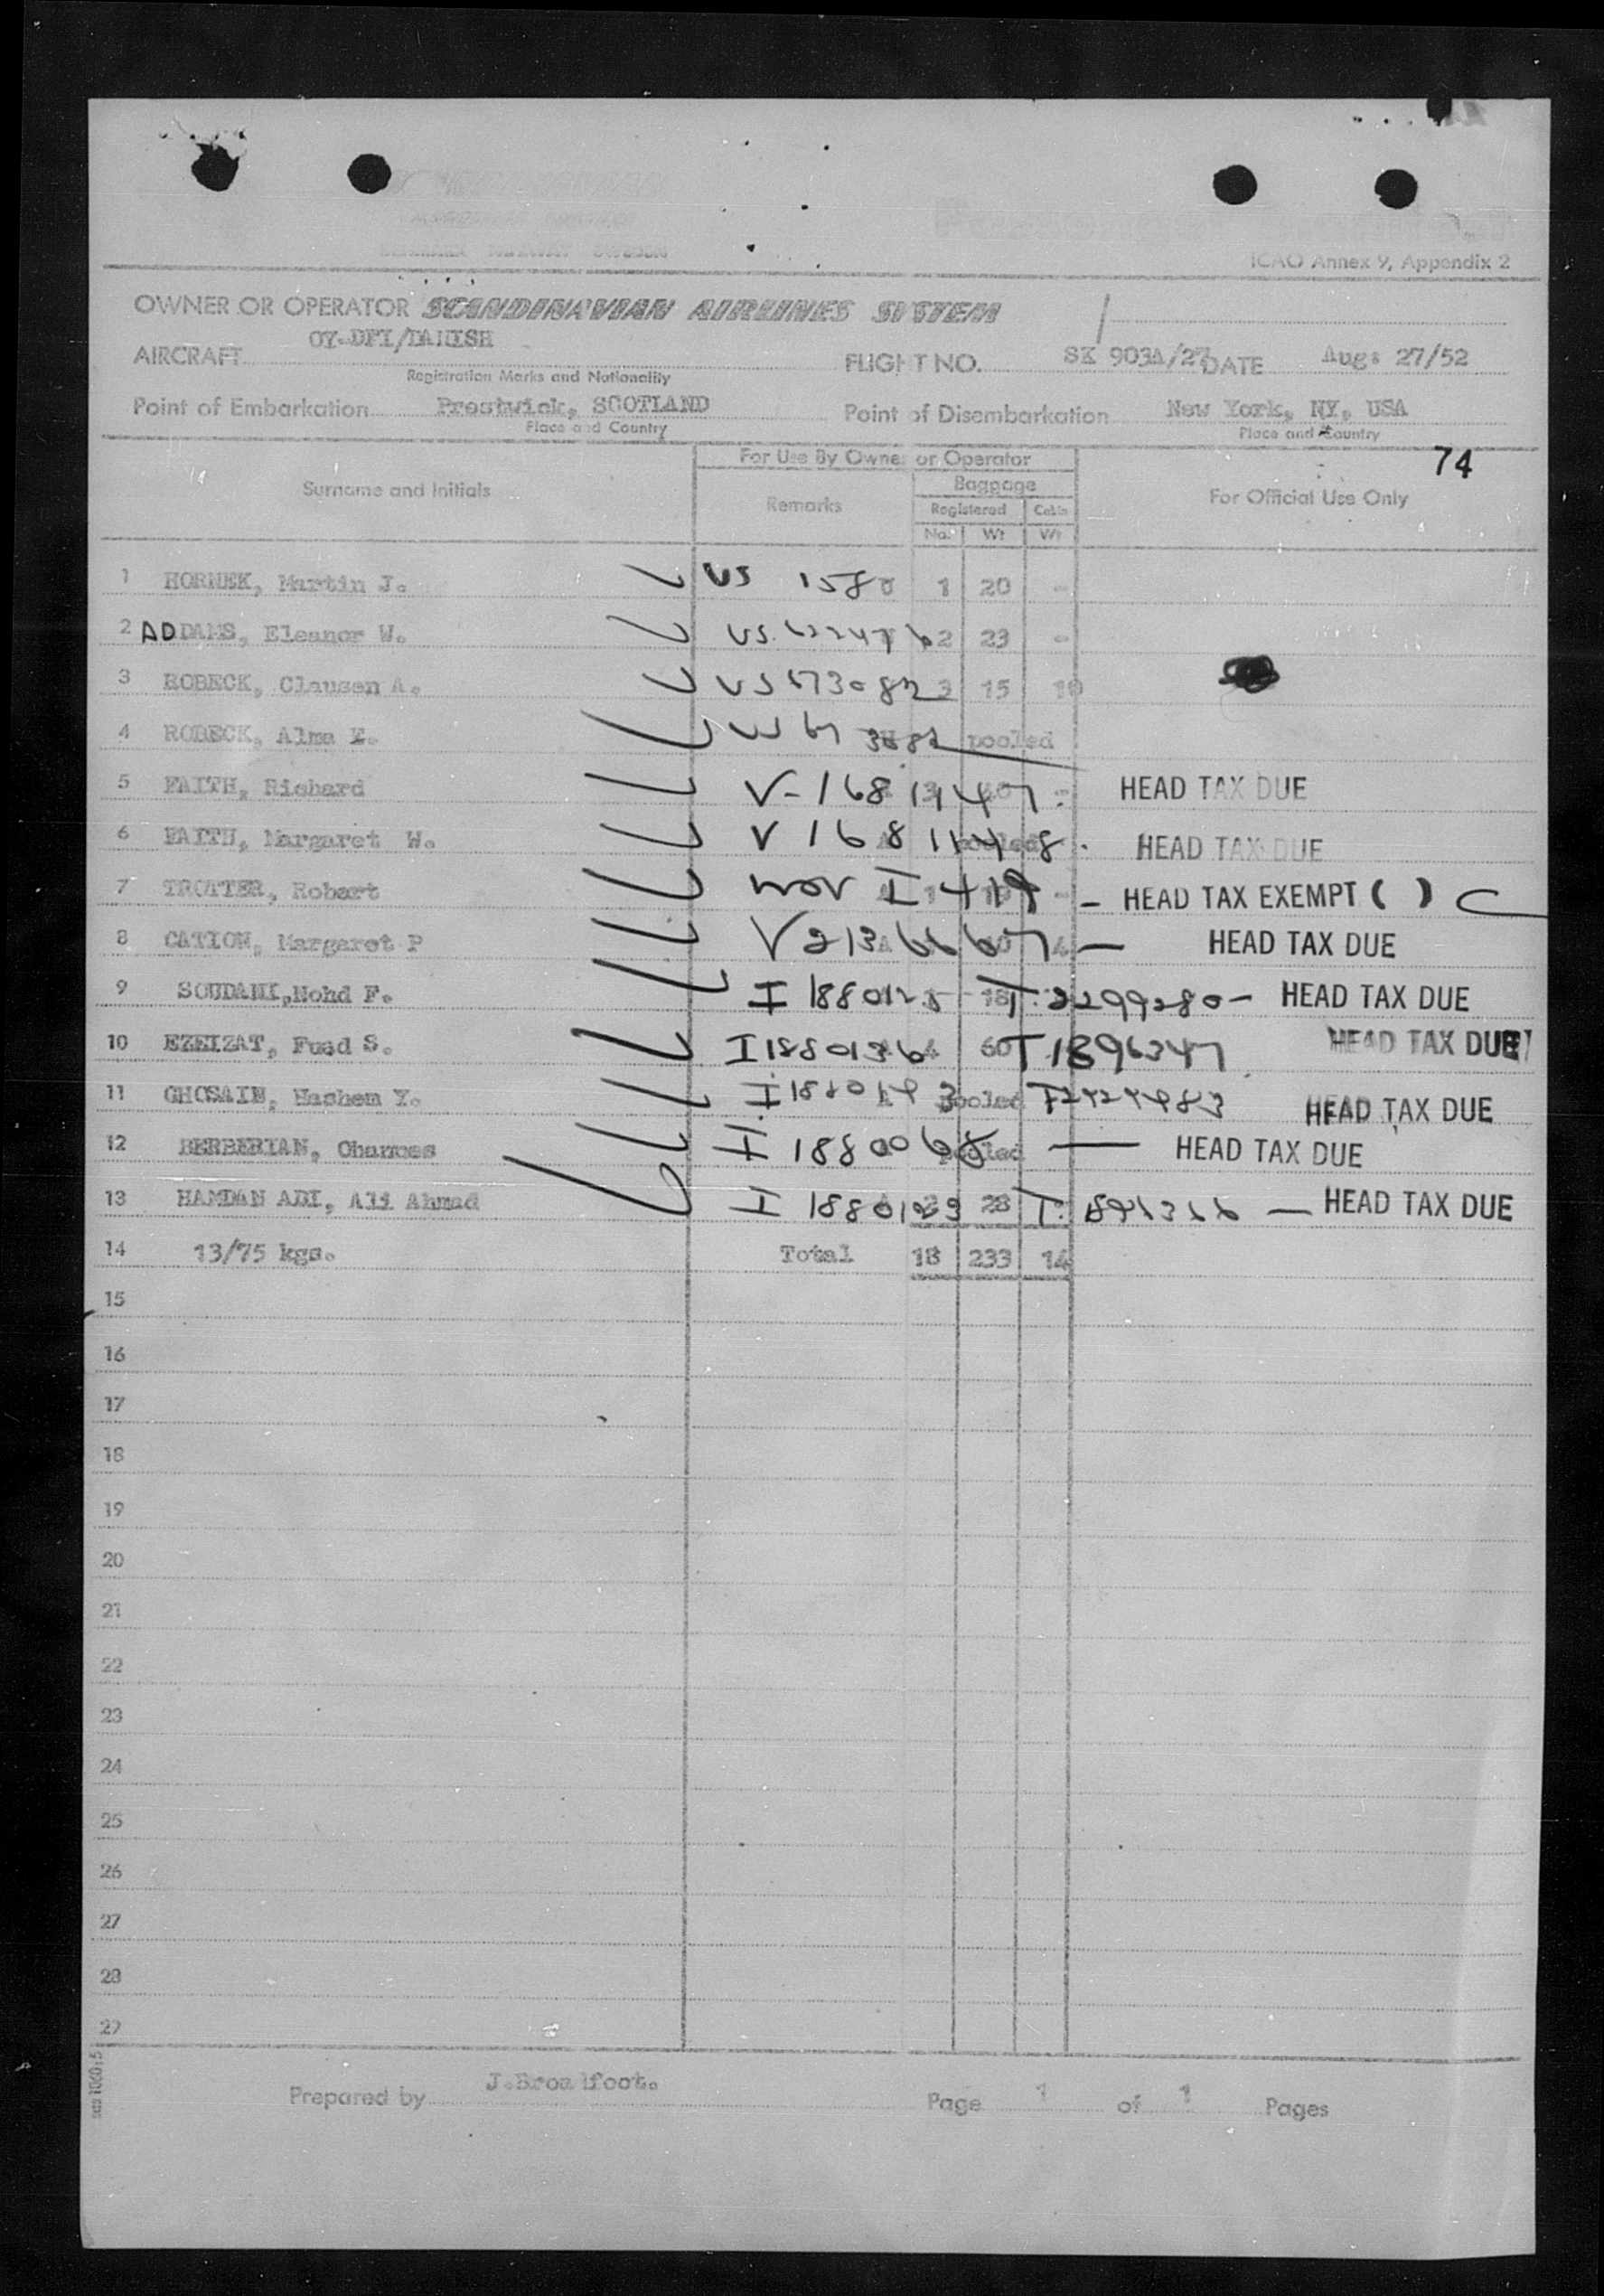 ICAO Annex 9, Appendix 2
OWNER OR OPERATOR SCANDINAVIAN AIRLINES SYSTEM
AIRCRAFT OY-DFI/DANISH FLIGHT NO. SK 903A/27 DATE Aug: 27/52
Registration Marks and Nationality
Point of Embarkation Prestwick, SCOTLAND Point of Disembarkation New York, NY, USA
Place and Country Place and Country
74
For Use By Owner or Operator
Surname and Initials Remarks Baggage For Official Use Only
Registered Cabin
No. Wt Wt
1 HORNEK, Martin J. US 1580 1 20 -
2 ADDAMS, Eleanor W. US 2 23 -
3 ROBECK, Clausen A. US 3 15 10
4 ROBECK, Alma E. US pooled
5 FAITH, Richard V-1681147. HEAD TAX DUE
6 FAITH, Margaret W. V 1681148. HEAD TAX DUE
7 TROTTER, Robert I 419 - HEAD TAX EXEMPT ( ) C
8 CATION, Margaret P V2136667 - HEAD TAX DUE
9 SOUDANI, Mohd F. I 1880128 18 T. 2299280 - HEAD TAX DUE
10 EZEIZAT, Fuad S. I1880136 60 T1896347 HEAD TAX DUE
11 GHOSAIN, Hashem Y. pooled T2424983 HEAD TAX DUE
12 BERBERIAN, Ohannes I 1880068 pooled — HEAD TAX DUE
13 HAMDAN ADI, Ali Ahmad I 28 — HEAD TAX DUE
14 13/75 kgs. Total 18 233 14
15
16
17
18
19
20
21
22
23
24
25
26
27
28
29
Prepared by J.Broadfoot. Page 1 of 1 Pages